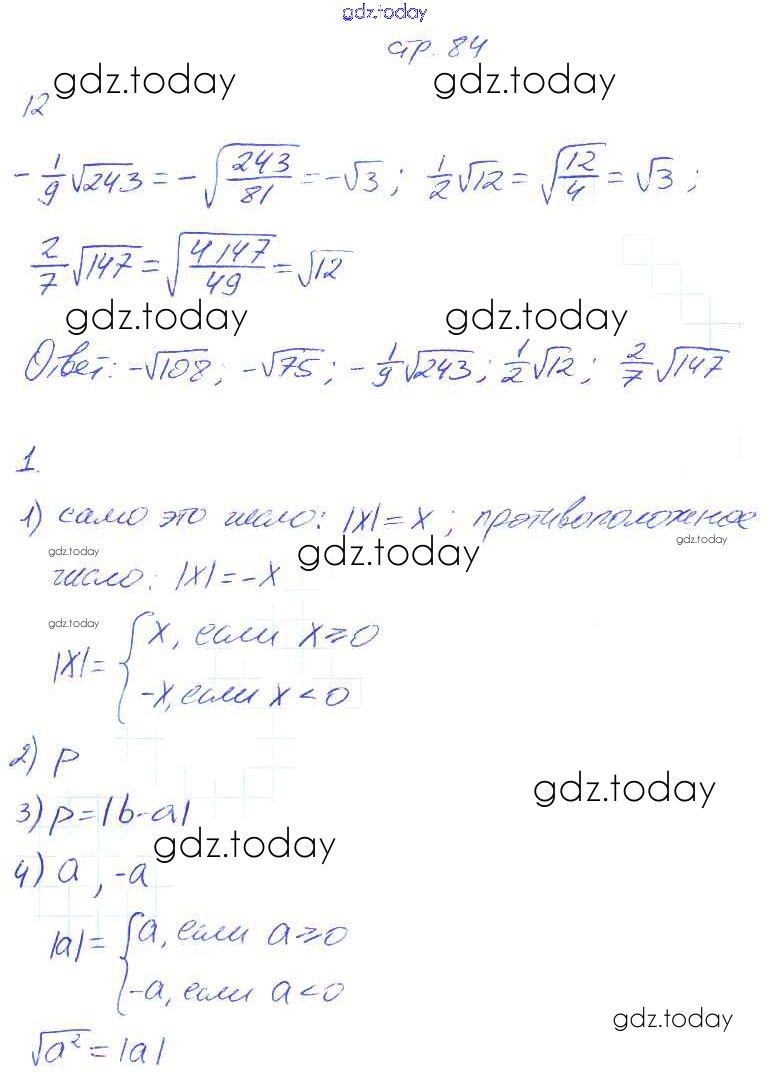 gdz.today
стр. 84
gdz.today gdz.today
12
-1/9√243 = -√(243/81) = -√3; 1/2√12 = √(12/4) = √3;
2/7√147 = √(4 147/49) = √12
gdz.today gdz.today
Ответ: -√108; -√75; -1/9√243; 1/2√12; 2/7√147
1.
1) само это число: |x| = x; противоположное
gdz.today gdz.today gdz.today
число: |x| = -x
gdz.today
|x| = { x, если x ≥ 0
-x, если x < 0
2) p
gdz.today
3) p = |b-a|
gdz.today
4) a, -a
|a| = { a, если a ≥ 0
-a, если a < 0
gdz.today
√a² = |a|